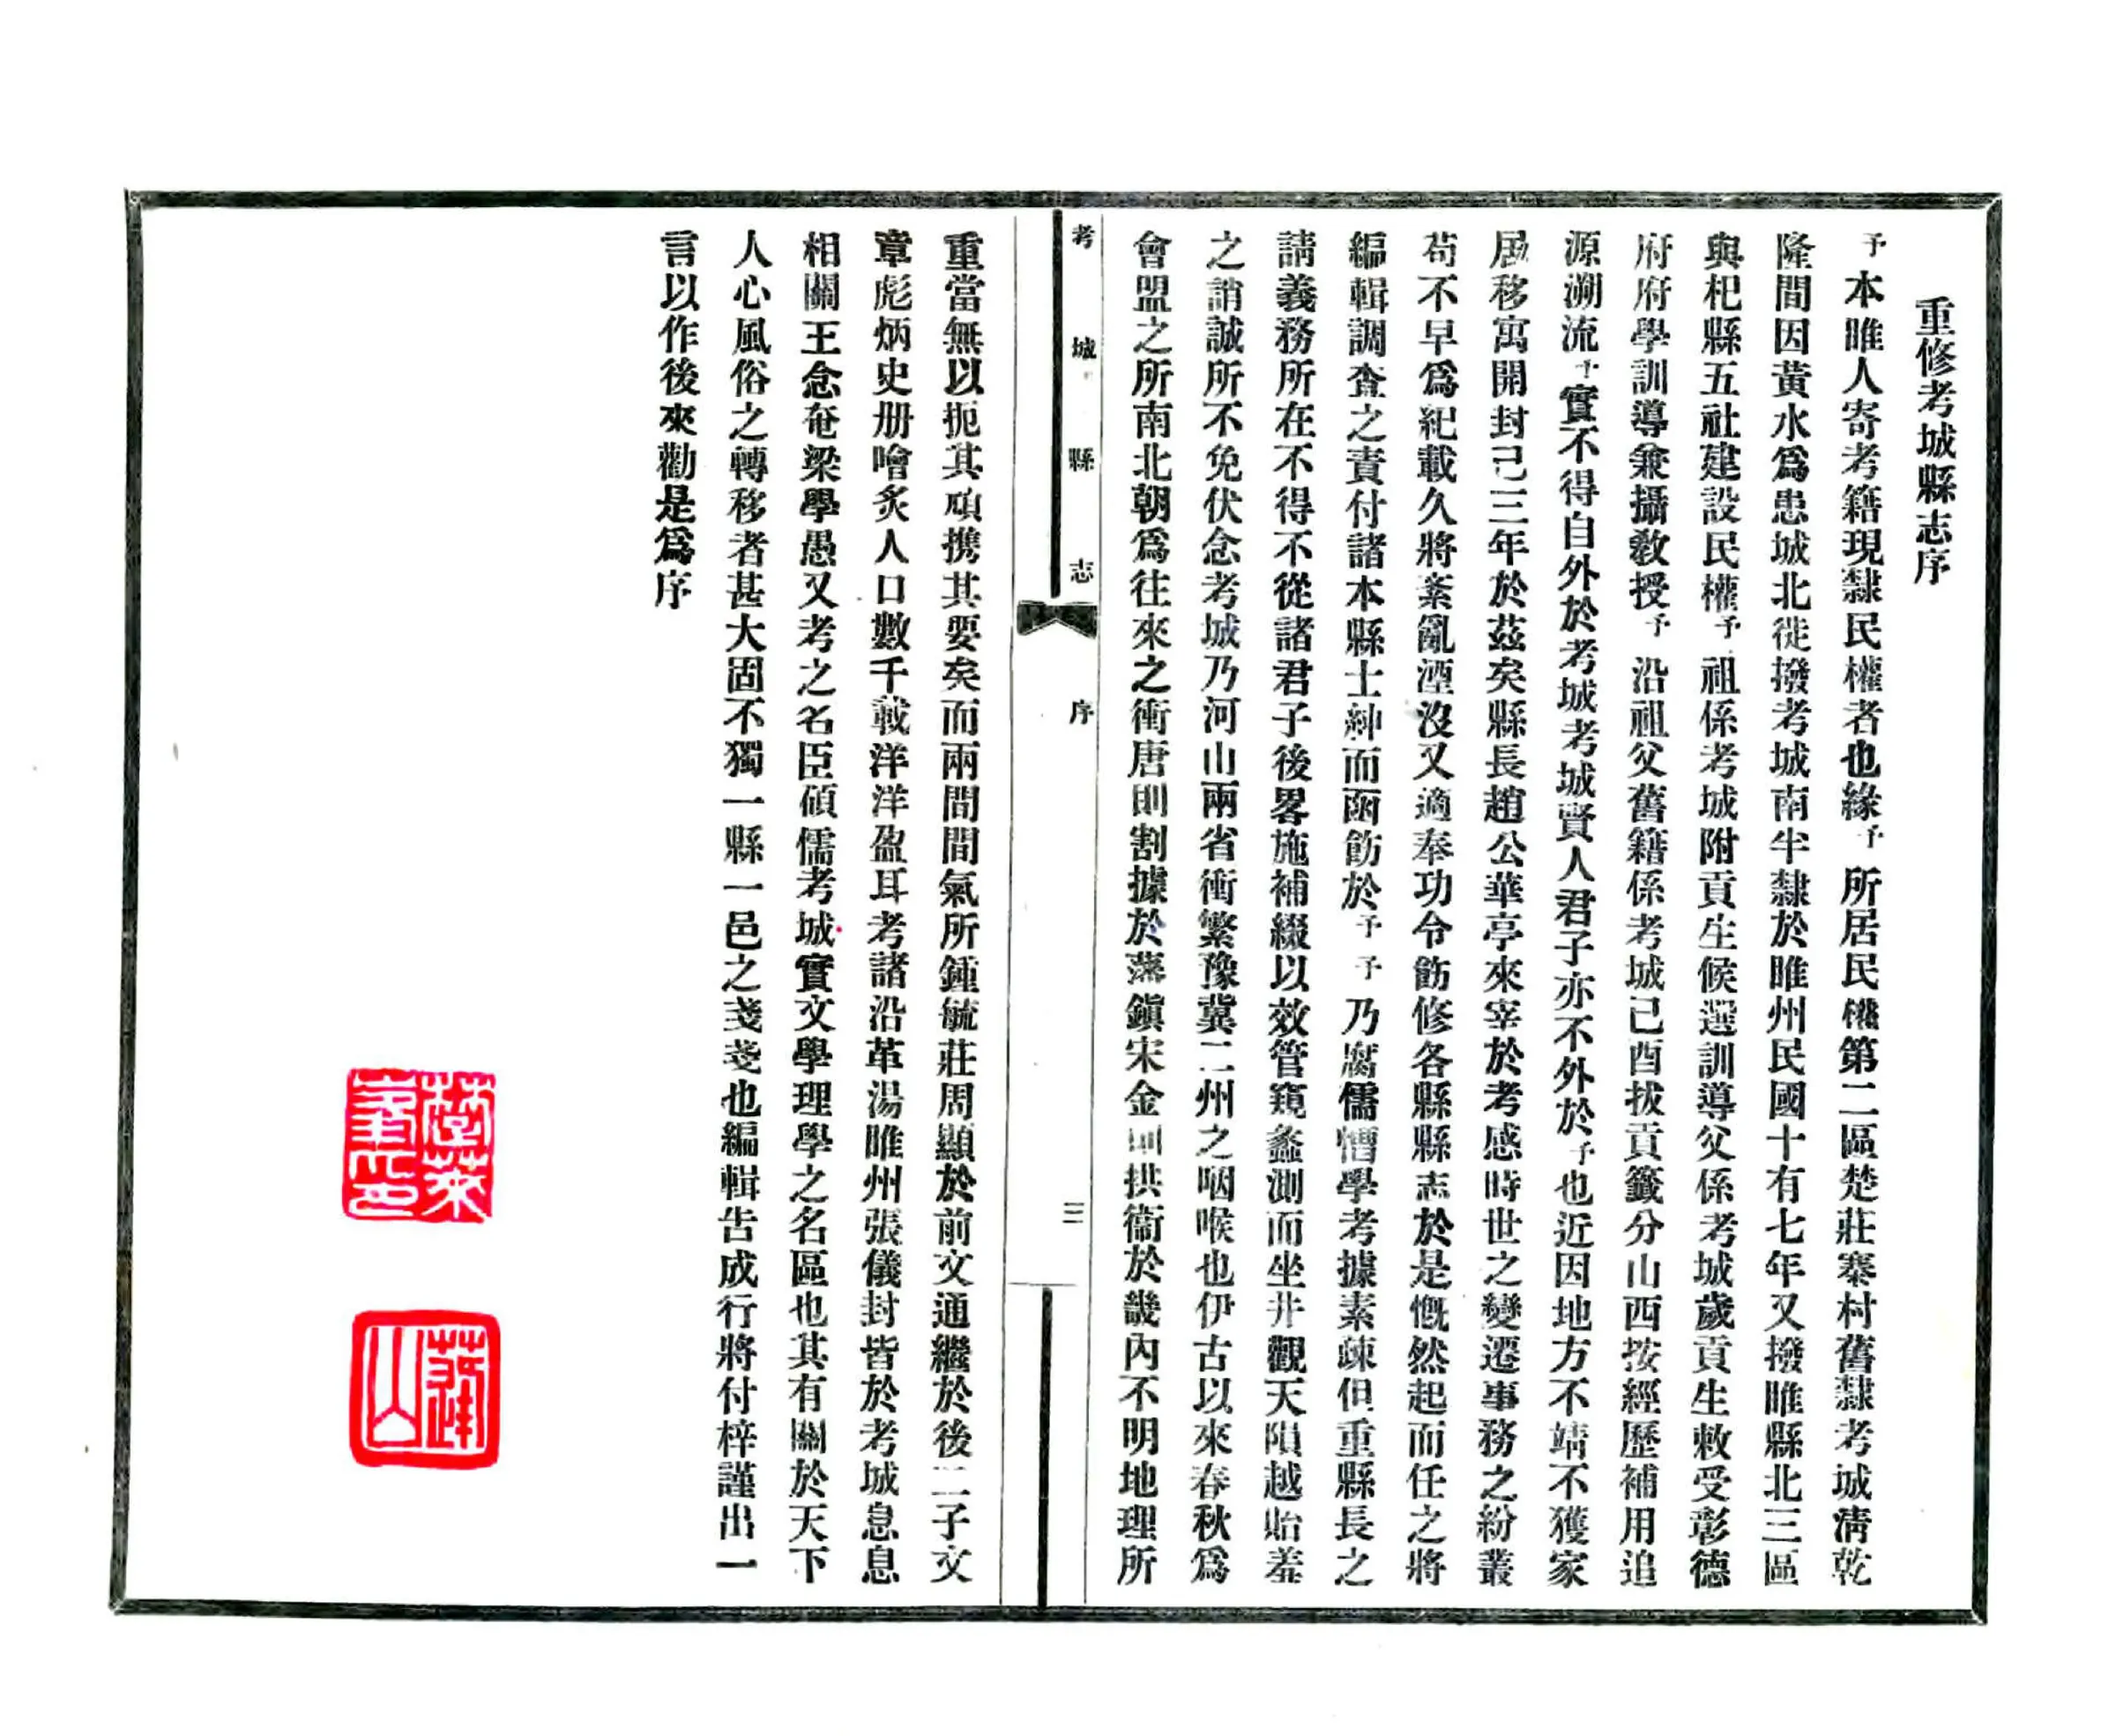 重修考城縣志序
予本睢人寄考籍現隸民權者也緣予所居民權第二區楚莊寨村舊隸考城清乾
隆間因黃水爲患城北徙撥考城南半隸於睢州民國十有七年又撥睢縣北三區
與杞縣五社建設民權予祖係考城附貢生候選訓導父係考城歲貢生敕受彰德
府府學訓導兼攝敎授予沿祖父舊籍係考城己酉拔貢籤分山西按經歷補用追
源溯流予實不得自外於考城考城賢人君子亦不外於予也近因地方不靖不獲家
居移寓開封已三年於茲矣縣長趙公華亭來宰於考感時世之變遷事務之紛叢
苟不早爲紀載久將紊亂湮沒又適奉功令飭修各縣縣志於是慨然起而任之將
編輯調查之責付諸本縣士紳而函飭於予予乃腐儒懵學考據素疎但重縣長之
請義務所在不得不從諸君子後畧施補綴以效管窺蠡測而坐井觀天隕越貽羞
之誚誠所不免伏念考城乃河山兩省衝繁豫冀二州之咽喉也伊古以來春秋爲
會盟之所南北朝爲往來之衝唐則割據於藩鎭宋金則拱衞於畿內不明地理所
考城縣志
序
三
重當無以扼其頑携其要矣而兩間間氣所鍾毓莊周顯於前文通繼於後二子文
章彪炳史册噲炙人口數千載洋洋盈耳考諸沿革湯睢州張儀封皆於考城息息
相關王念奄梁學愚又考之名臣碩儒考城實文學理學之名區也其有關於天下
人心風俗之轉移者甚大固不獨一縣一邑之戔戔也編輯告成行將付梓謹出一
言以作後來勸是爲序